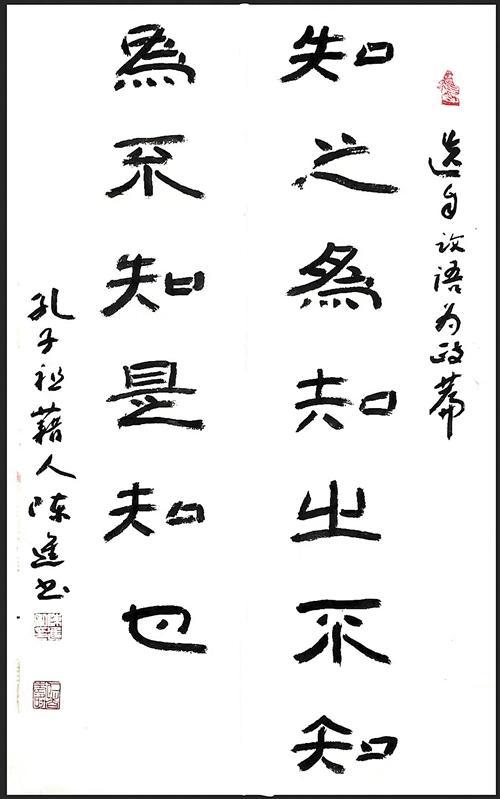 选自论语为政篇
知之為知之不知
為不知是知也
孔子祖藉人陈進书